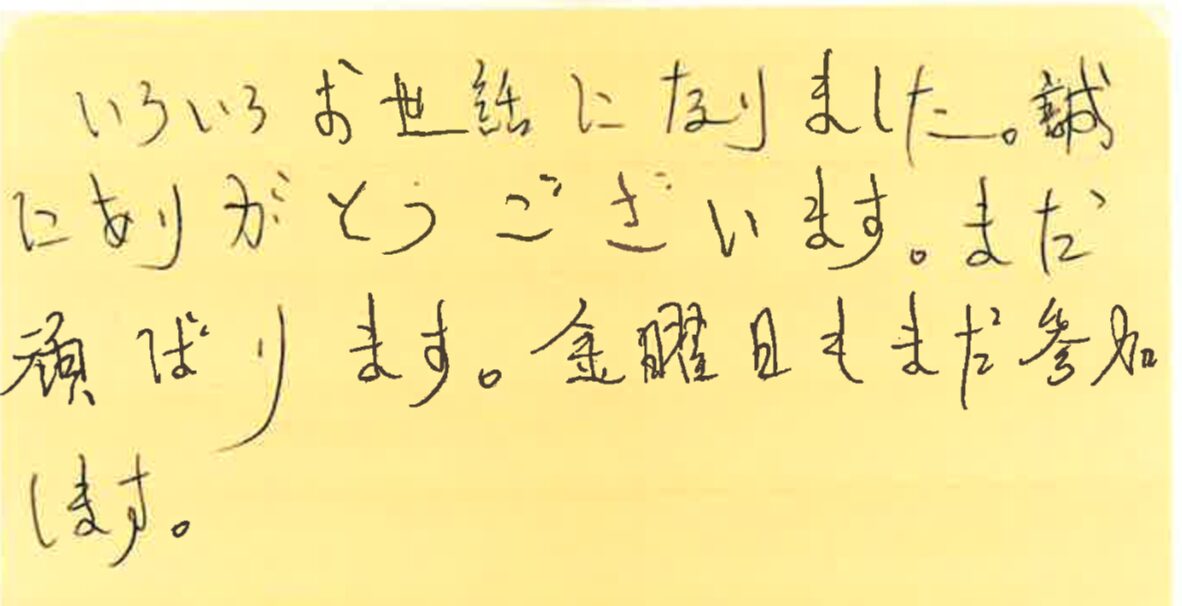 いろいろお世話になりました。誠
にありがとうございます。まだ
頑ばります。金曜日もまだ参加
します。